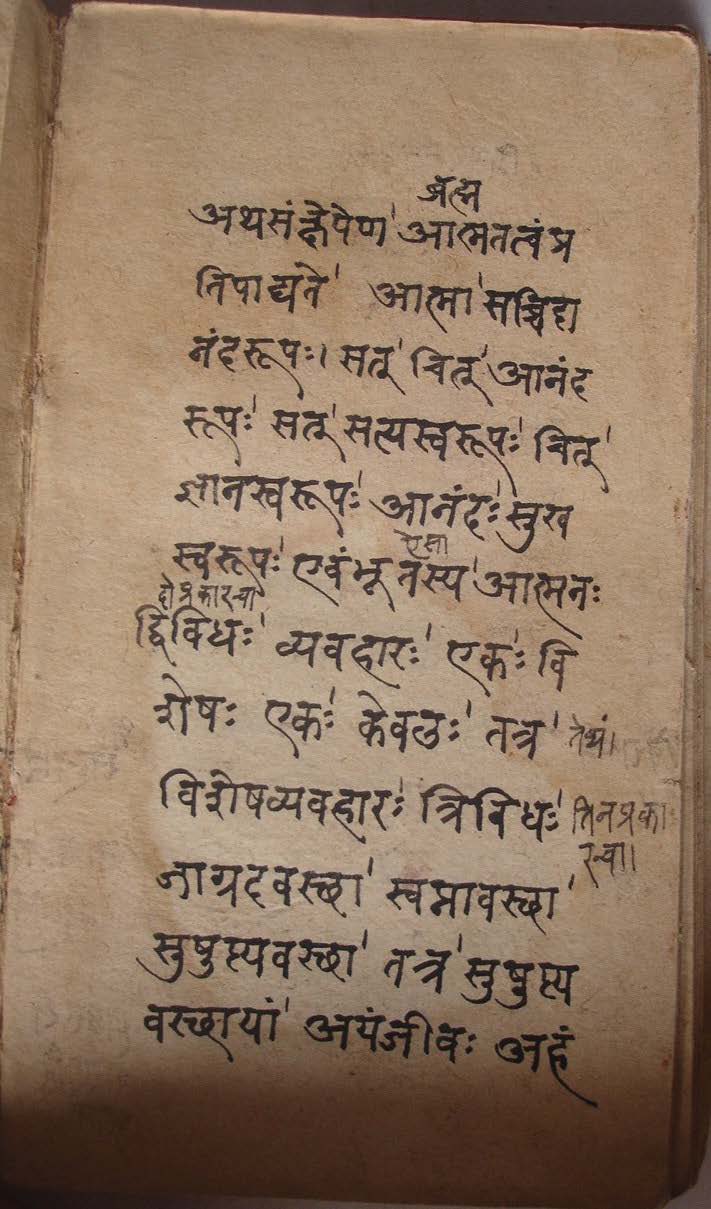 ब्रह्म
अथसंक्षेपेण' आत्मतत्वंप्र
तिपाद्यते' आत्मा' सच्चिदा
नंदरूपः। सत्' चित्' आनंद
रूपः' सत्' सत्यस्वरूपः' चित्'
ज्ञानस्वरूपः' आनंदः' सुख
ऐसा
स्वरूपः' एवंभूतस्य' आत्मनः
दो प्रकारचा
द्विविधः' व्यवहारः' एकः' वि
शेषः एकः' केवलः' तत्र' तेथें।
विशेषव्यवहारः' त्रिविधः' तिनप्रका
रचा।
जाग्रदवस्छा' स्वप्नावस्छा'
सुषुप्त्यवस्छा' तत्र' सुषुप्त्य
वस्छायां' अयंजीवः अहं